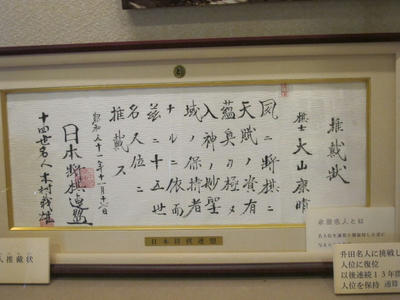 推戴状
棋士 大山康晴
夙ニ将棋ニ
天賦ノ資有
蘊奥ヲ極メ
入神ノ妙聖
域ノ保持者
ナルニ依而
茲ニ十五世
名人位ニ
推戴ス
昭和五十一年十一月
日本将棋連盟
十四世名人木村義雄
日本将棋連盟
人推戴状
永世名人とは
升田名人に挑戦し
人位に復位
以後連続13年間
人位を保持 通算